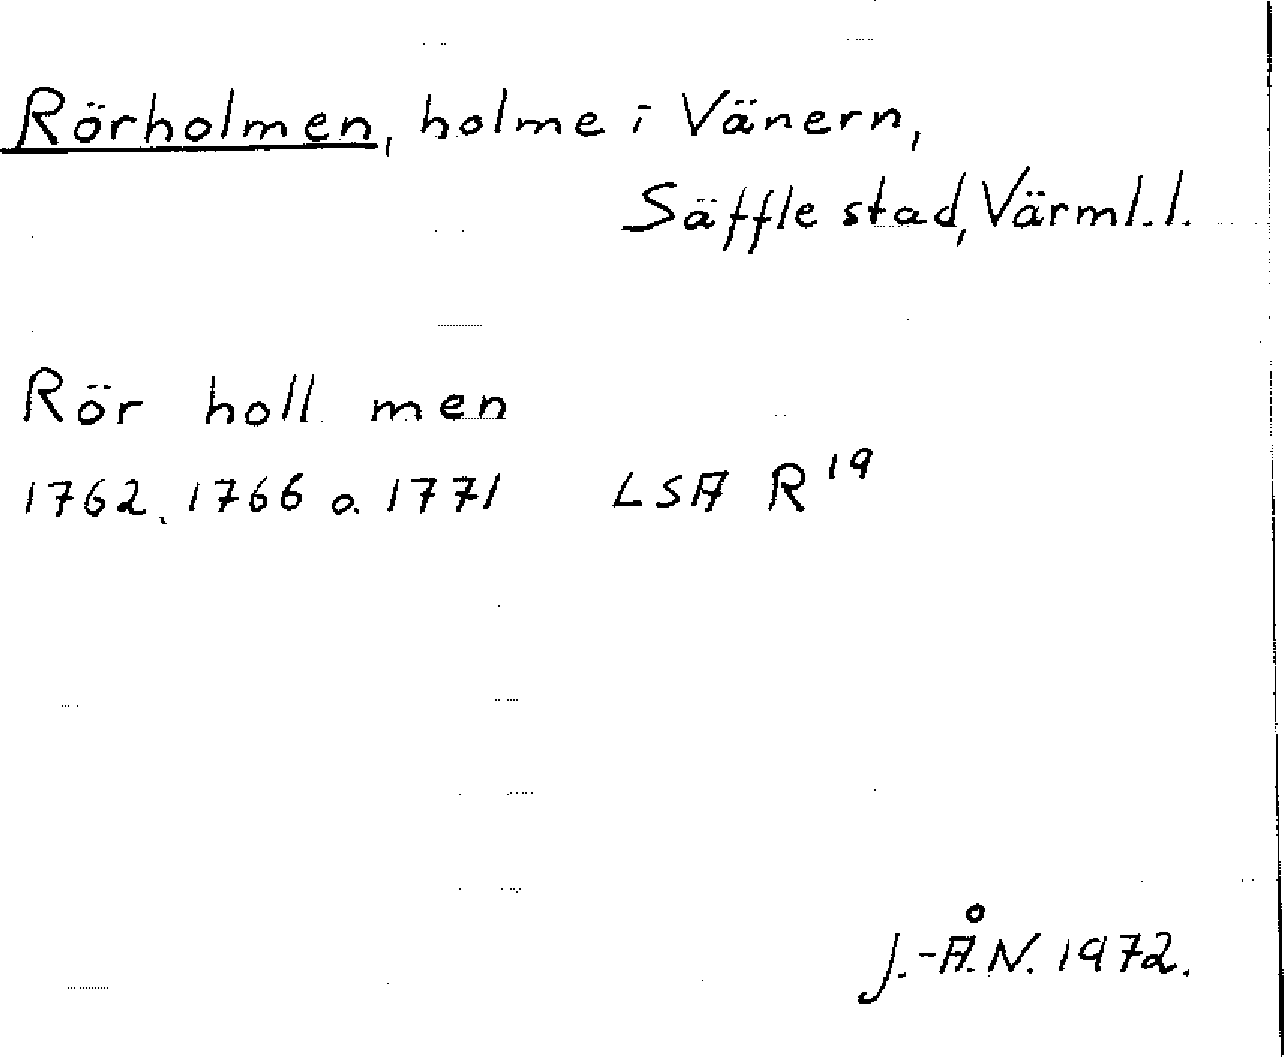 Rörholmen, holme i Vänern,
Säffle stad, Värml. l.
Rör holl men
1762, 1766 o. 1771 LSA R 19
J.-Å. N. 1972.